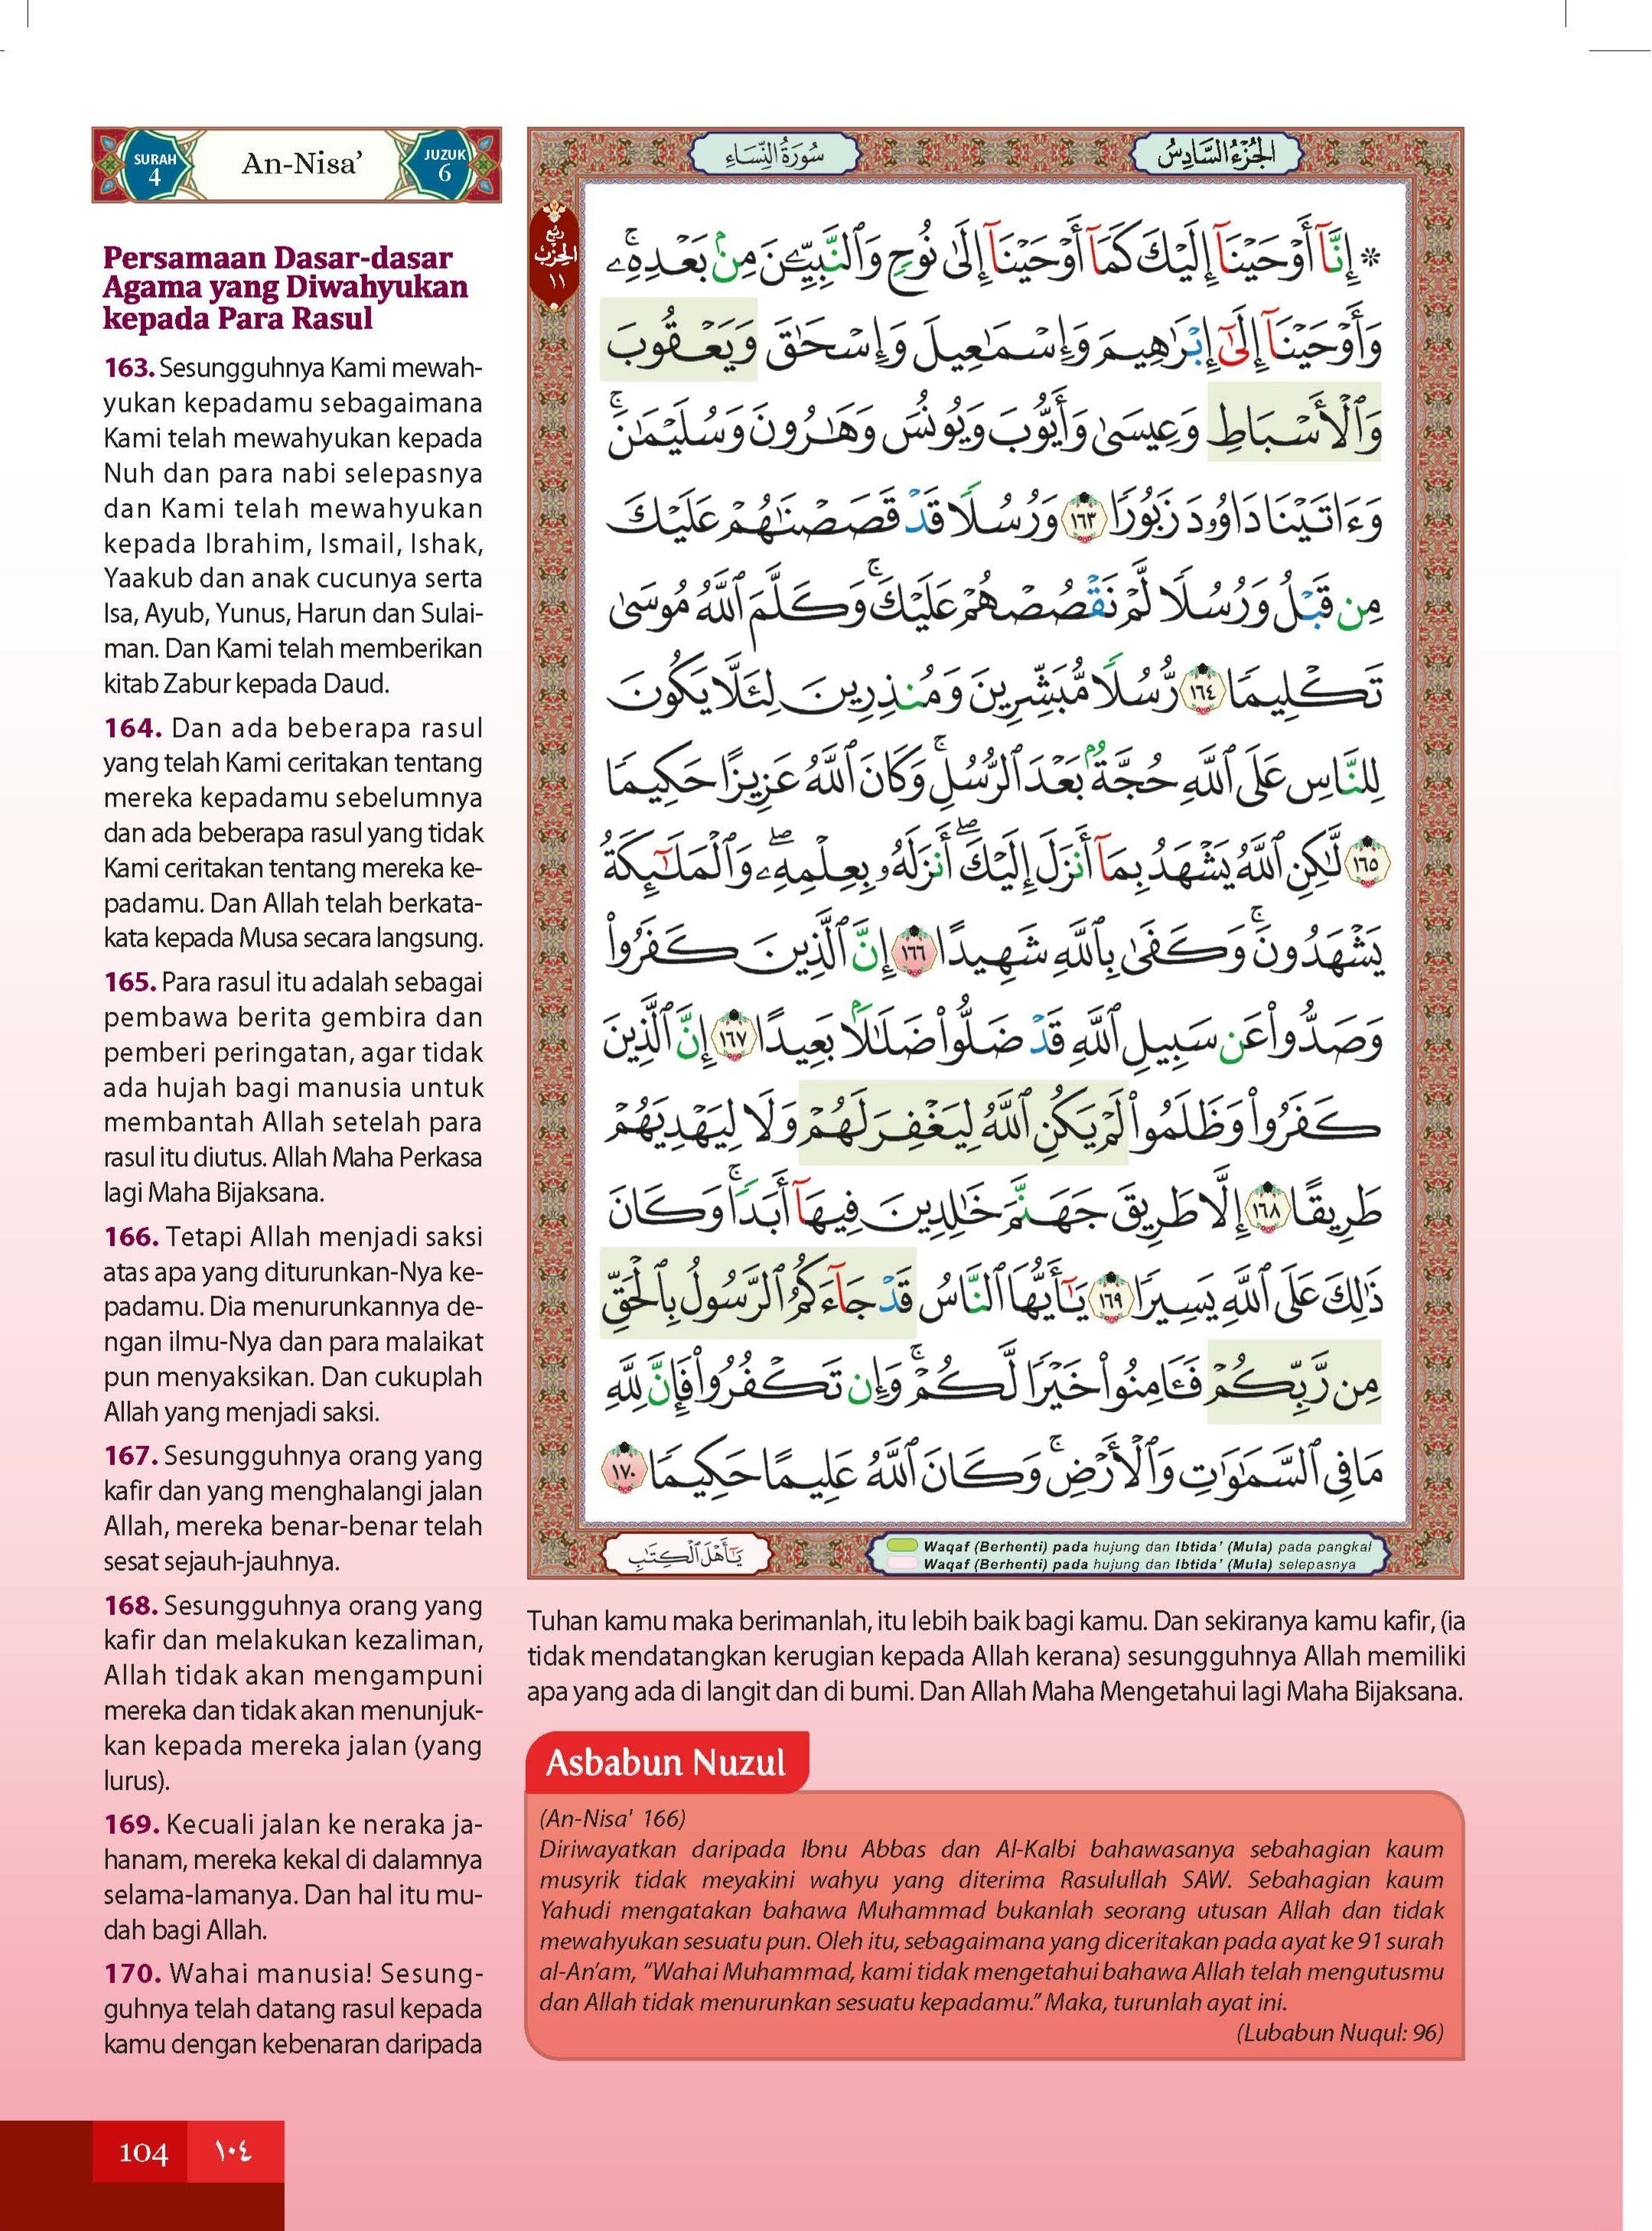 SURAH
4
An-Nisa’
JUZUK
6
Persamaan Dasar-dasar
Agama yang Diwahyukan
kepada Para Rasul
163. Sesungguhnya Kami mewah-
yukan kepadamu sebagaimana
Kami telah mewahyukan kepada
Nuh dan para nabi selepasnya
dan Kami telah mewahyukan
kepada Ibrahim, Ismail, Ishak,
Yaakub dan anak cucunya serta
Isa, Ayub, Yunus, Harun dan Sulai-
man. Dan Kami telah memberikan
kitab Zabur kepada Daud.
164. Dan ada beberapa rasul
yang telah Kami ceritakan tentang
mereka kepadamu sebelumnya
dan ada beberapa rasul yang tidak
Kami ceritakan tentang mereka ke-
padamu. Dan Allah telah berkata-
kata kepada Musa secara langsung.
165. Para rasul itu adalah sebagai
pembawa berita gembira dan
pemberi peringatan, agar tidak
ada hujah bagi manusia untuk
membantah Allah setelah para
rasul itu diutus. Allah Maha Perkasa
lagi Maha Bijaksana.
166. Tetapi Allah menjadi saksi
atas apa yang diturunkan-Nya ke-
padamu. Dia menurunkannya de-
ngan ilmu-Nya dan para malaikat
pun menyaksikan. Dan cukuplah
Allah yang menjadi saksi.
167. Sesungguhnya orang yang
kafir dan yang menghalangi jalan
Allah, mereka benar-benar telah
sesat sejauh-jauhnya.
168. Sesungguhnya orang yang
kafir dan melakukan kezaliman,
Allah tidak akan mengampuni
mereka dan tidak akan menunjuk-
kan kepada mereka jalan (yang
lurus).
169. Kecuali jalan ke neraka ja-
hanam, mereka kekal di dalamnya
selama-lamanya. Dan hal itu mu-
dah bagi Allah.
170. Wahai manusia! Sesung-
guhnya telah datang rasul kepada
kamu dengan kebenaran daripada
الجُزْءُ السَّادِسُ
سُورَةُ النِّسَاءِ
ربع
الحزب
١١
* إِنَّآ أَوْحَيْنَآ إِلَيْكَ كَمَآ أَوْحَيْنَآ إِلَىٰ نُوحٍ وَٱلنَّبِيِّـۧنَ مِنۢ بَعْدِهِۦۚ
وَأَوْحَيْنَآ إِلَىٰٓ إِبْرَٰهِيمَ وَإِسْمَـٰعِيلَ وَإِسْحَـٰقَ وَيَعْقُوبَ
وَٱلْأَسْبَاطِ وَعِيسَىٰ وَأَيُّوبَ وَيُونُسَ وَهَـٰرُونَ وَسُلَيْمَـٰنَۚ
وَءَاتَيْنَا دَاوُۥدَ زَبُورًا ١٦٣ وَرُسُلًا قَدْ قَصَصْنَـٰهُمْ عَلَيْكَ
مِن قَبْلُ وَرُسُلًا لَّمْ نَقْصُصْهُمْ عَلَيْكَۚ وَكَلَّمَ ٱللَّهُ مُوسَىٰ
تَكْلِيمًا ١٦٤ رُّسُلًا مُّبَشِّرِينَ وَمُنذِرِينَ لِئَلَّا يَكُونَ
لِلنَّاسِ عَلَى ٱللَّهِ حُجَّةٌۢ بَعْدَ ٱلرُّسُلِۚ وَكَانَ ٱللَّهُ عَزِيزًا حَكِيمًا
١٦٥ لَّـٰكِنِ ٱللَّهُ يَشْهَدُ بِمَآ أَنزَلَ إِلَيْكَۖ أَنزَلَهُۥ بِعِلْمِهِۦۖ وَٱلْمَلَـٰٓئِكَةُ
يَشْهَدُونَۚ وَكَفَىٰ بِٱللَّهِ شَهِيدًا ١٦٦ إِنَّ ٱلَّذِينَ كَفَرُوا۟
وَصَدُّوا۟ عَن سَبِيلِ ٱللَّهِ قَدْ ضَلُّوا۟ ضَلَـٰلًۢا بَعِيدًا ١٦٧ إِنَّ ٱلَّذِينَ
كَفَرُوا۟ وَظَلَمُوا۟ لَمْ يَكُنِ ٱللَّهُ لِيَغْفِرَ لَهُمْ وَلَا لِيَهْدِيَهُمْ
طَرِيقًا ١٦٨ إِلَّا طَرِيقَ جَهَنَّمَ خَـٰلِدِينَ فِيهَآ أَبَدًاۚ وَكَانَ
ذَٰلِكَ عَلَى ٱللَّهِ يَسِيرًا ١٦٩ يَـٰٓأَيُّهَا ٱلنَّاسُ قَدْ جَآءَكُمُ ٱلرَّسُولُ بِٱلْحَقِّ
مِن رَّبِّكُمْ فَـَٔامِنُوا۟ خَيْرًا لَّكُمْۚ وَإِن تَكْفُرُوا۟ فَإِنَّ لِلَّهِ
مَا فِى ٱلسَّمَـٰوَٰتِ وَٱلْأَرْضِۚ وَكَانَ ٱللَّهُ عَلِيمًا حَكِيمًا ١٧٠
يَـٰٓأَهْلَ ٱلْكِتَـٰبِ
Waqaf (Berhenti) pada hujung dan Ibtida’ (Mula) pada pangkal
Waqaf (Berhenti) pada hujung dan Ibtida’ (Mula) selepasnya
Tuhan kamu maka berimanlah, itu lebih baik bagi kamu. Dan sekiranya kamu kafir, (ia
tidak mendatangkan kerugian kepada Allah kerana) sesungguhnya Allah memiliki
apa yang ada di langit dan di bumi. Dan Allah Maha Mengetahui lagi Maha Bijaksana.
Asbabun Nuzul
(An-Nisa' 166)
Diriwayatkan daripada Ibnu Abbas dan Al-Kalbi bahawasanya sebahagian kaum
musyrik tidak meyakini wahyu yang diterima Rasulullah SAW. Sebahagian kaum
Yahudi mengatakan bahawa Muhammad bukanlah seorang utusan Allah dan tidak
mewahyukan sesuatu pun. Oleh itu, sebagaimana yang diceritakan pada ayat ke 91 surah
al-An’am, “Wahai Muhammad, kami tidak mengetahui bahawa Allah telah mengutusmu
dan Allah tidak menurunkan sesuatu kepadamu.” Maka, turunlah ayat ini.
(Lubabun Nuqul: 96)
104 ١٠٤